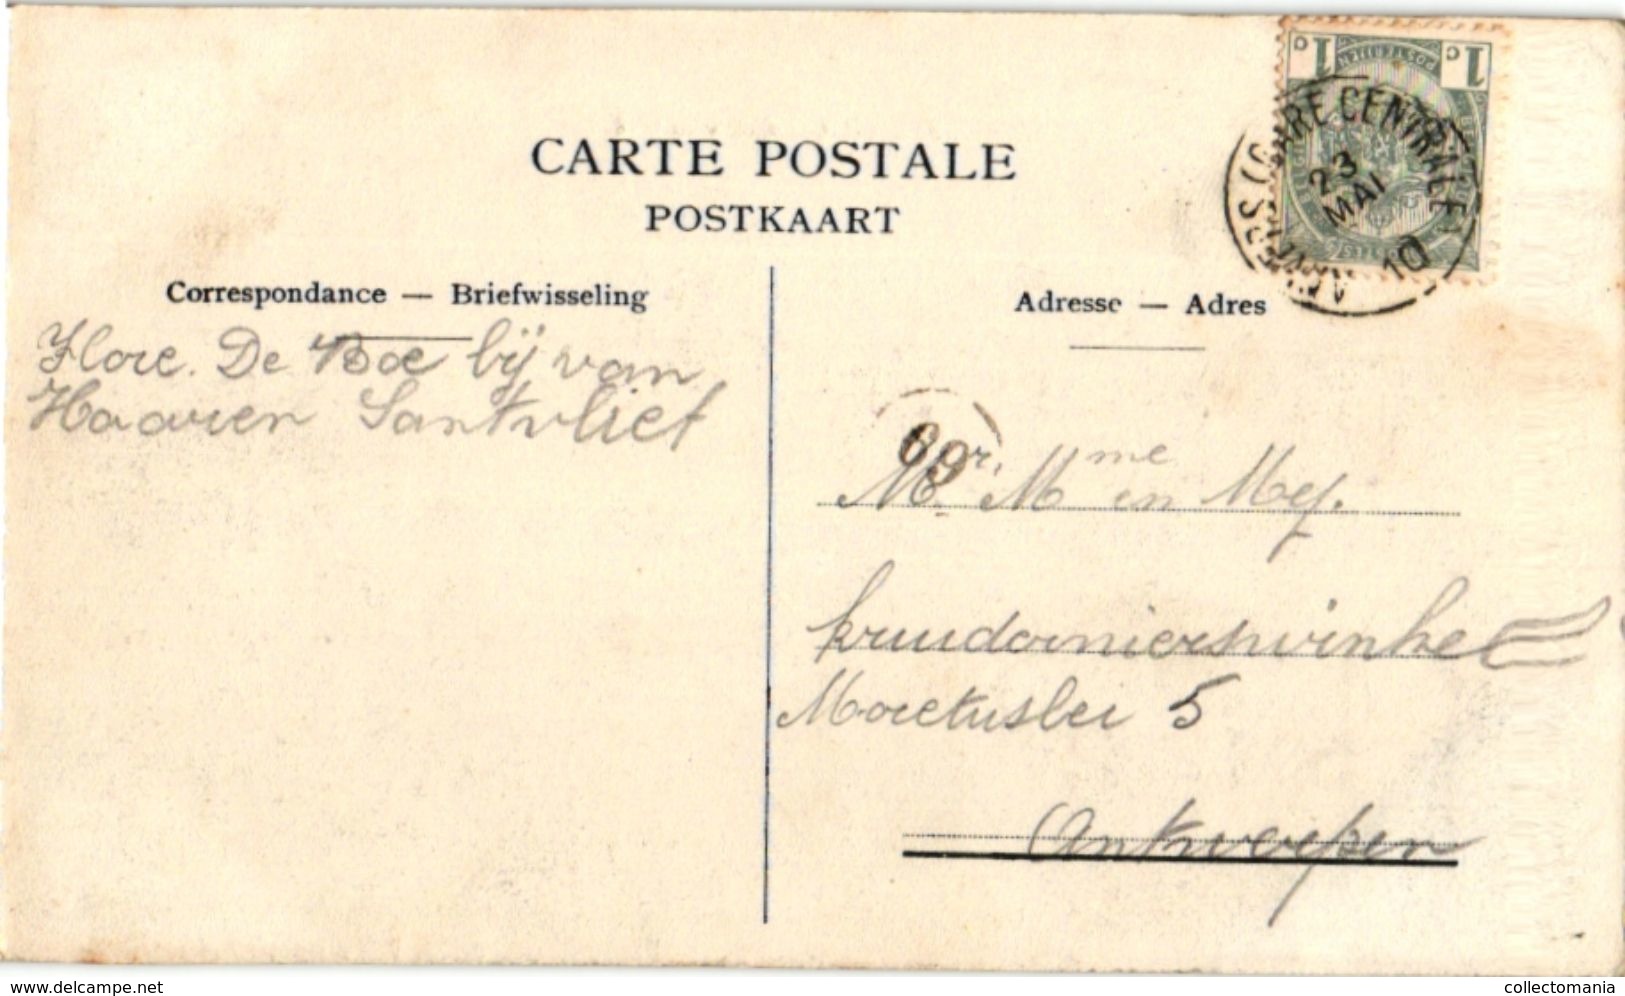 CARTE POSTALE
POSTKAART
Correspondance — Briefwisseling
Flore. De Boe bij van
Haaren Santvliet
Adresse — Adres
1c POSTERIJEN 1c
ANVERS (GARE CENTRALE)
23
MAI
10
69
Mr. Mme en Mej.
kruidenierswinkel
Moretuslei 5
Antwerpen
www.delcampe.net
collectomania